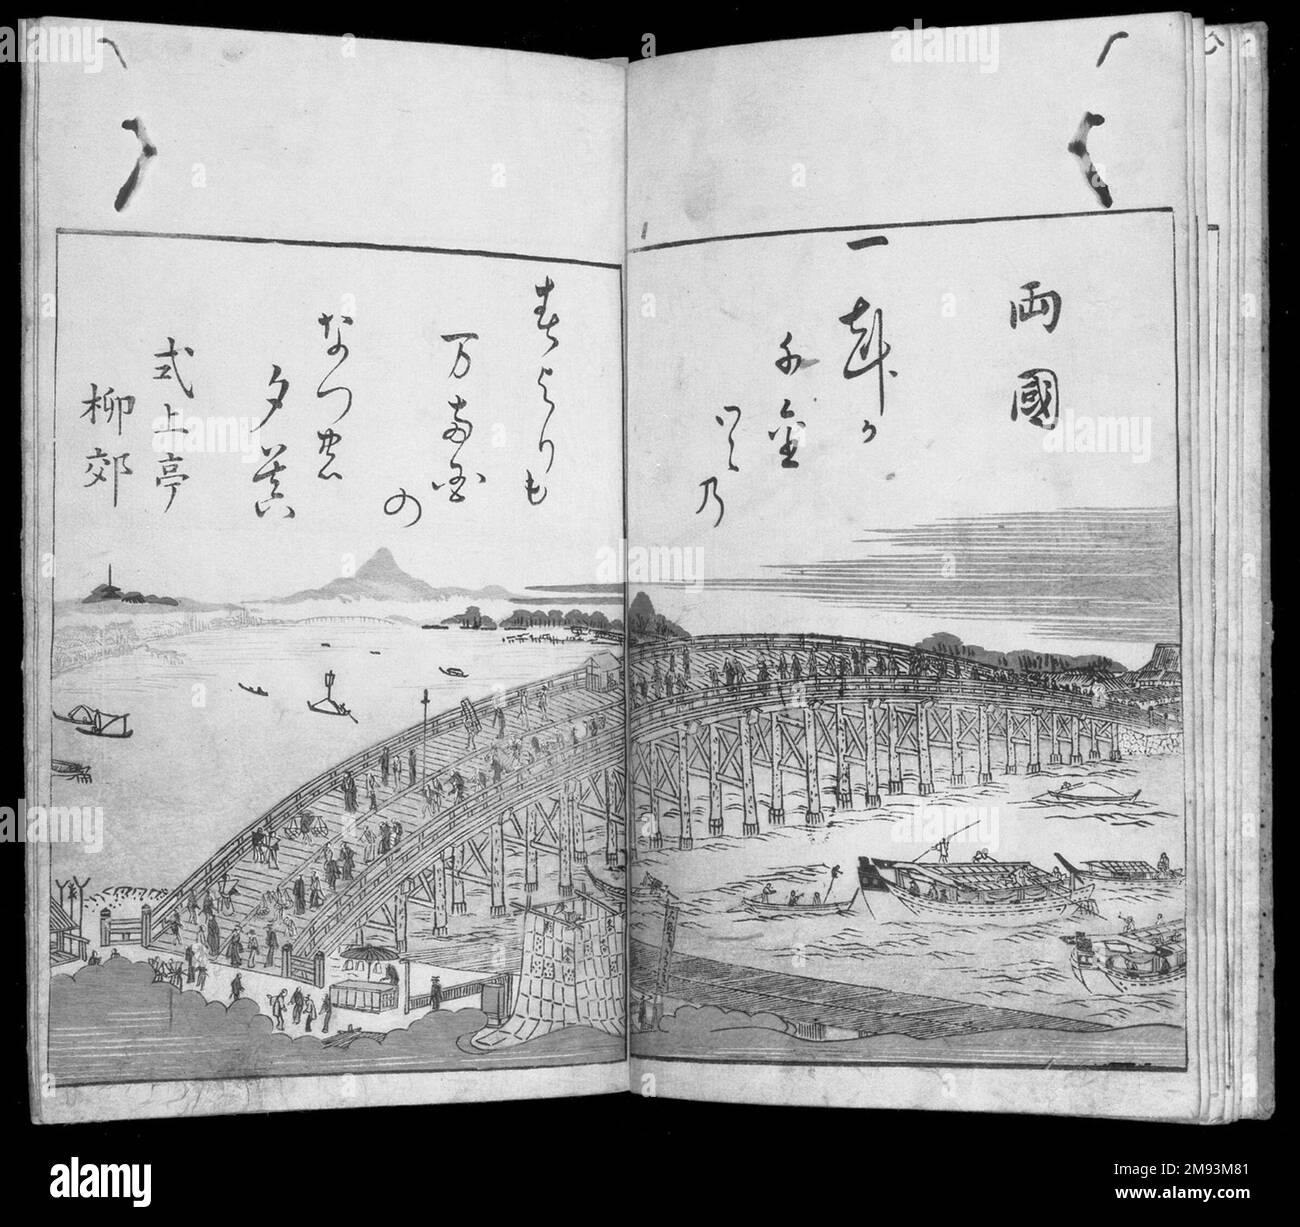 両國
一刻か
千金
つゝ乃
春よりも
万両国
の
なつの
夕暮
式上亭
柳郊
alamy
Image ID: 2M93M81
www.alamy.com